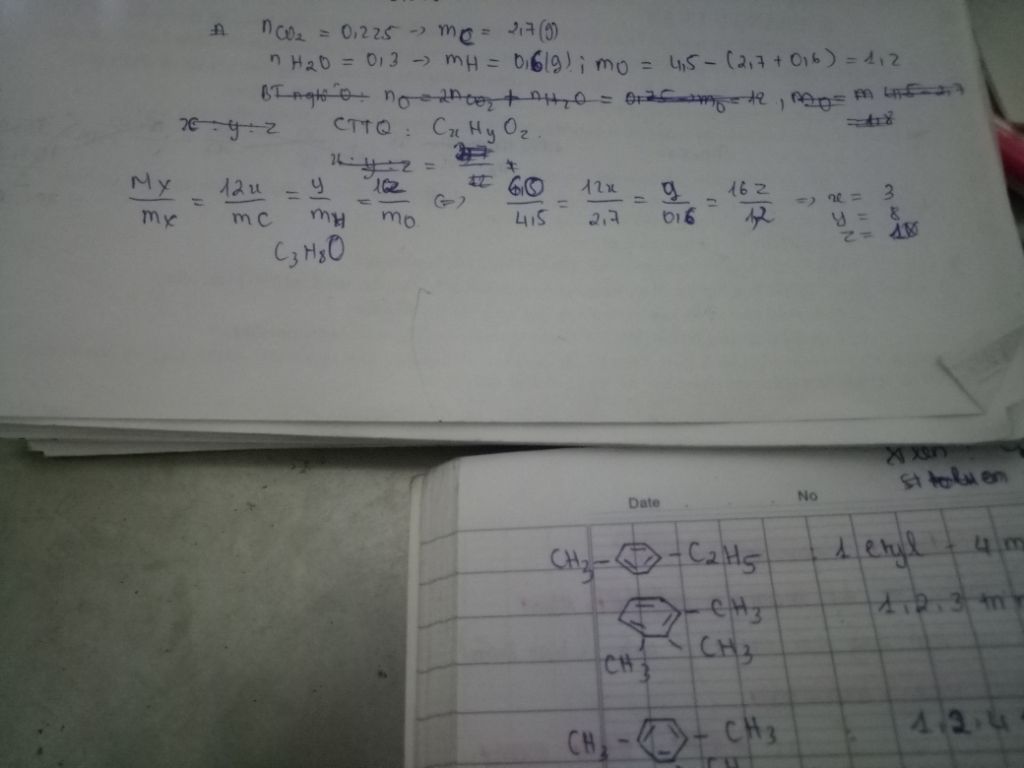 nCO2 = 0,225 -> mC = 2,7(g)
nH2O = 0,3 -> mH = 0,6(g) ; mO = 4,5 - (2,7 + 0,6) = 1,2
nO = 2nCO2 + nH2O = 0,75 -> mO = 12 , mO = m 4,5 - 2,7
= 1,8
x : y : z CTTQ : CxHyOz.
x : y : z =
MX/mX = 12x/mC = y/mH = 16z/mO <=> 60/4,5 = 12x/2,7 = y/0,6 = 16z/1,2 => x = 3
y = 8
z = 1
C3H8O
st toluen
Date No
CH3 - - C2H5 1 etyl 4 m
- CH3 1,2,3
CH3
CH3
CH3 - - CH3 1,2,4